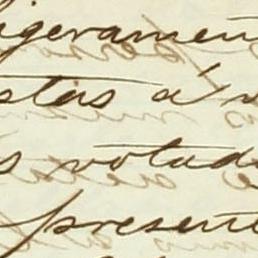 igeramen
stas á v
s votad
present